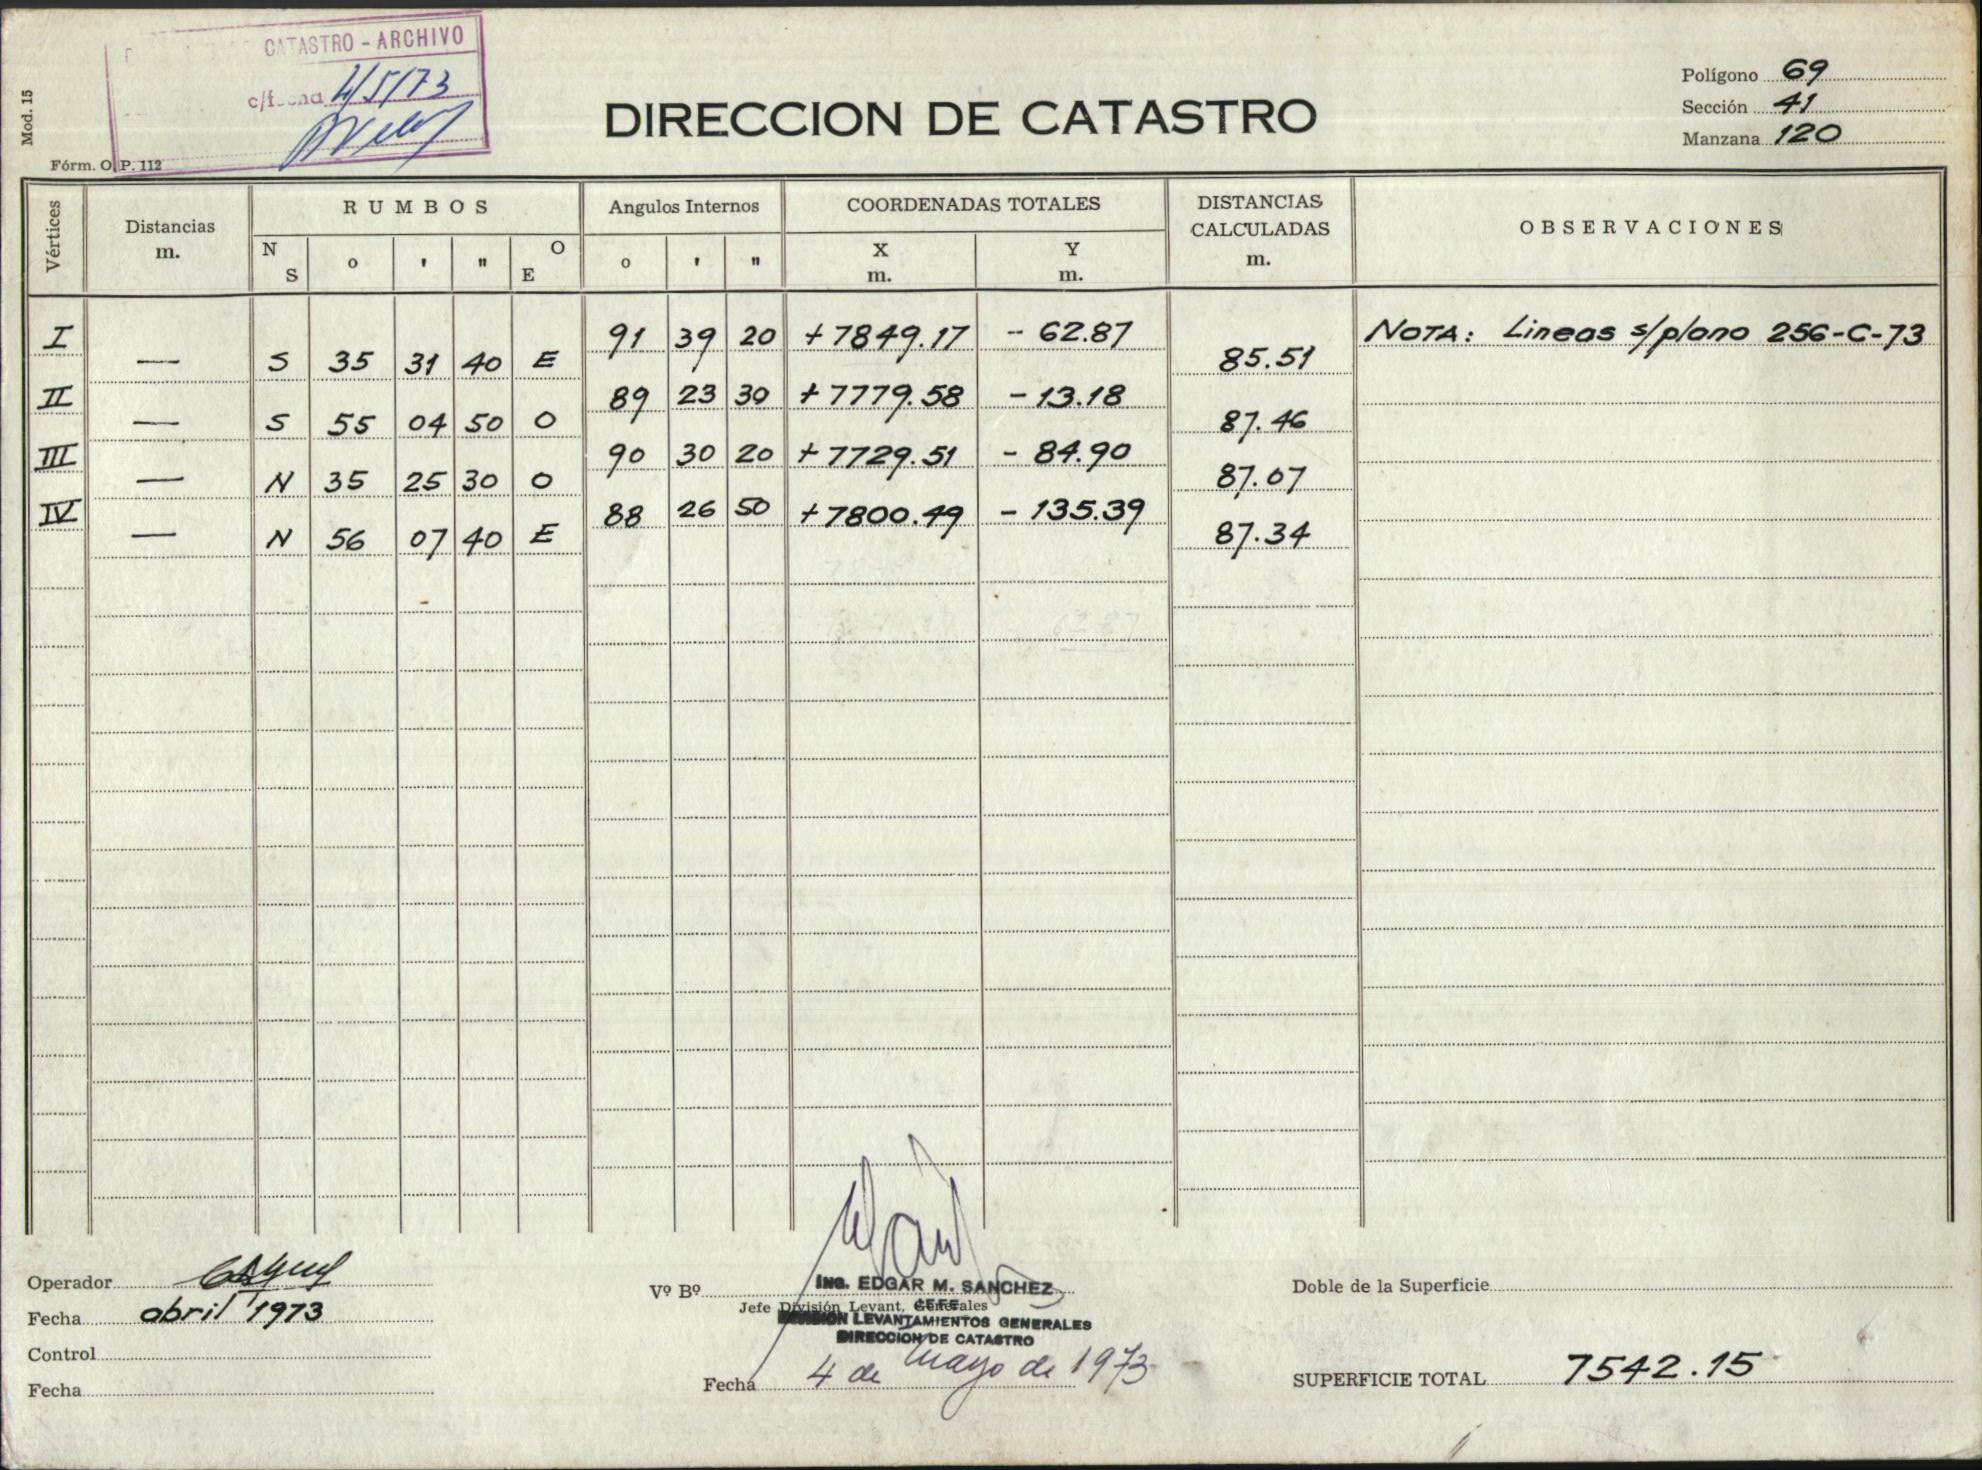 CATASTRO - ARCHIVO
4/5/73
Mod. 15
Fórm. O. P. 112
DIRECCION DE CATASTRO
Polígono 69
Sección 41
Manzana 120
Vértices Distancias m. RUMBOS Angulos Internos COORDENADAS TOTALES DISTANCIAS CALCULADAS m. OBSERVACIONES
N S o ' " O E o ' " X m. Y m.
I 91 39 20 +7849.17 - 62.87 NOTA: Lineas s/plano 256-C-73
— S 35 31 40 E 85.51
II 89 23 30 +7779.58 - 13.18
— S 55 04 50 O 87.46
III 90 30 20 +7729.51 - 84.90
— N 35 25 30 O 87.07
IV 88 26 50 +7800.49 - 135.39
— N 56 07 40 E 87.34
Operador
Fecha abril 1973
Control
Fecha
Vº Bº
ING. EDGAR M. SANCHEZ
Jefe División Levant. Generales
JEFE
DIVISION LEVANTAMIENTOS GENERALES
DIRECCION DE CATASTRO
Fecha 4 de Mayo de 1973
Doble de la Superficie
SUPERFICIE TOTAL 7542.15